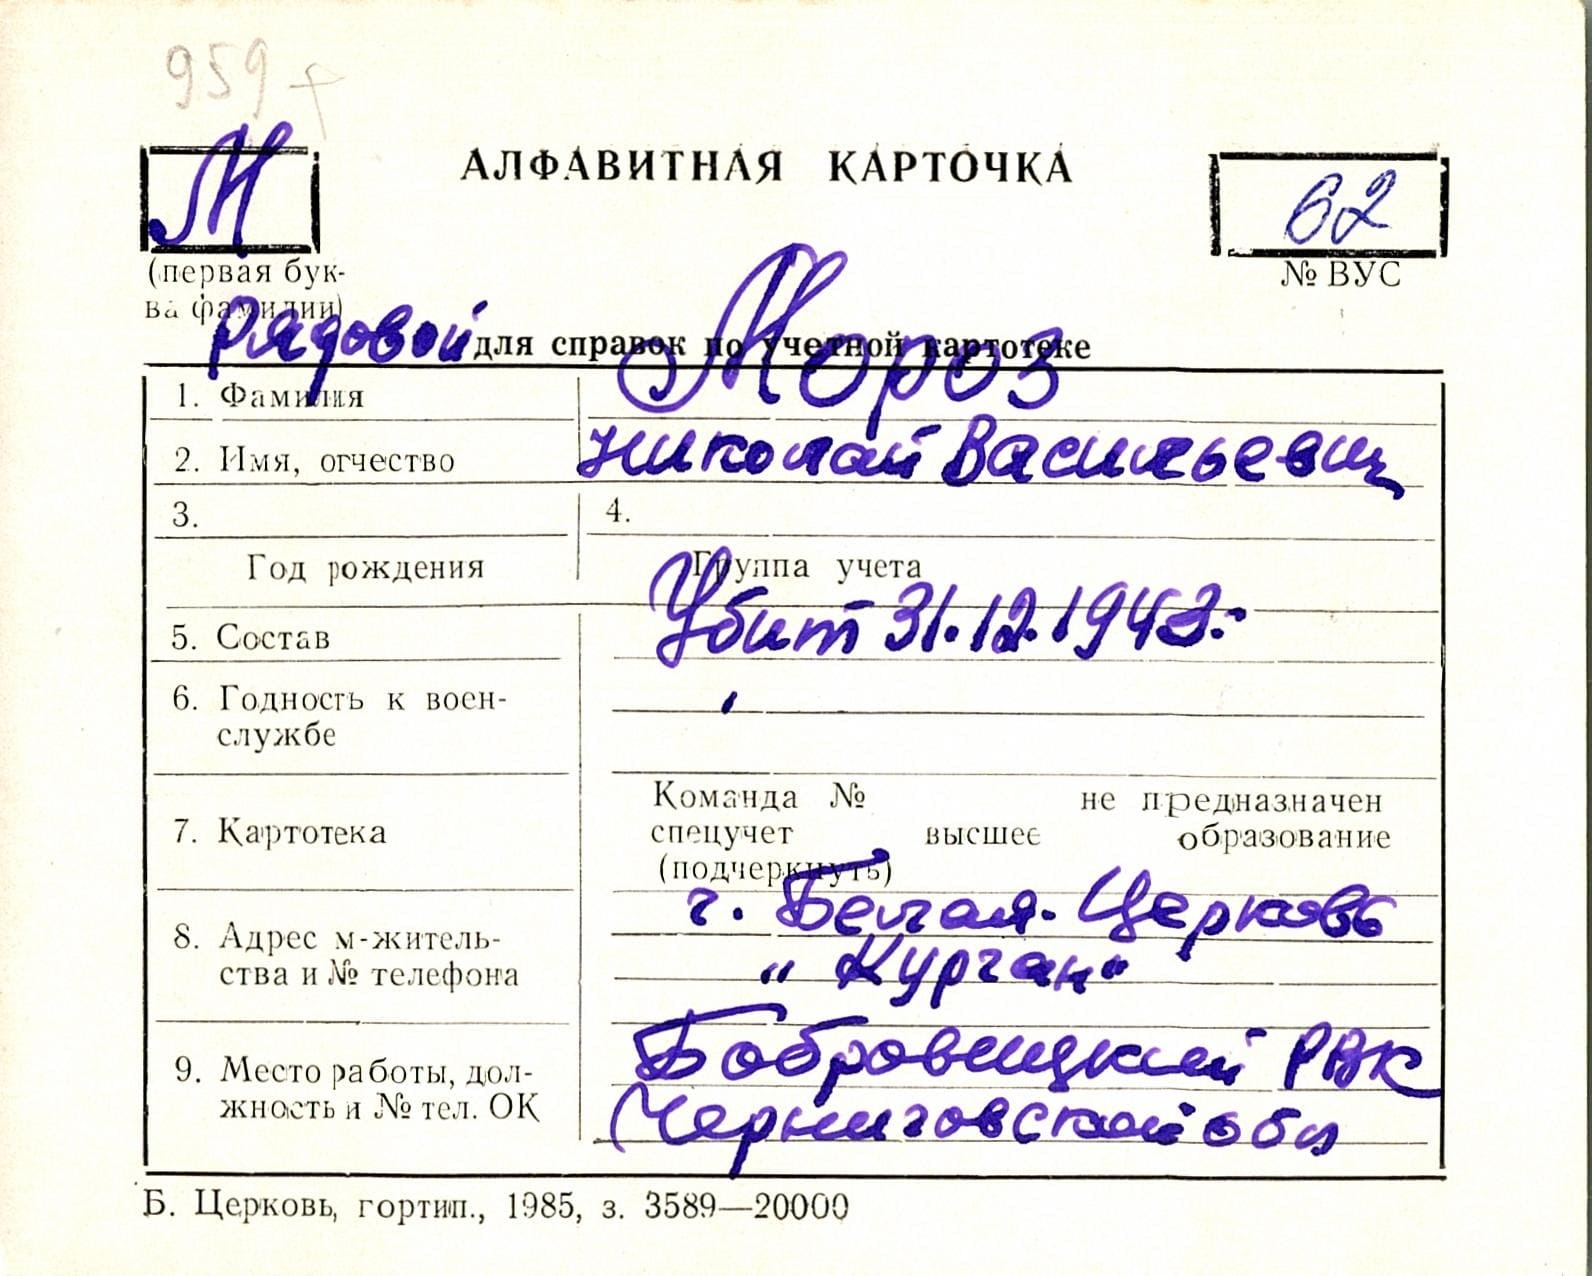 959 +
М
АЛФАВИТНАЯ КАРТОЧКА
62
(первая бук-
ва фамилии)
№ ВУС
Рядовой
для справок по учетной картотеке
1. Фамилия
Мороз
2. Имя, отчество
Николай Васильевич
3.
4.
Год рождения
Группа учета
Убит 31.12.1943г.
5. Состав
6. Годность к воен-
службе
Команда № не предназначен
7. Картотека
спецучет высшее образование
(подчеркнуть)
г. Белая-Церковь
8. Адрес м-житель-
ства и № телефона
"Курган"
Бобровицкий РВК
9. Место работы, дол-
жность и № тел. ОК
Черниговской обл
Б. Церковь, гортип., 1985, з. 3589—20000